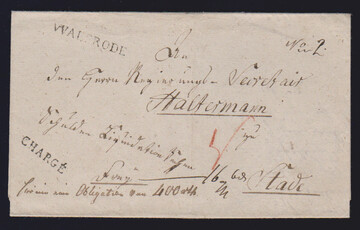 WALSRODE
No 2.
An
den Herrn Regierungs-Secretair
Haltermann
Schulden Liquidation Sachen
zu
CHARGÉ
Frey
Stade
Obligation von 400